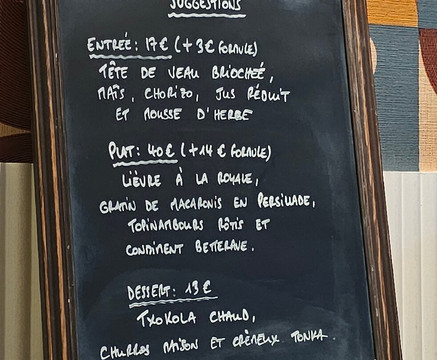 SUGGESTIONS
ENTRÉE : 17€ (+3€ FORMULE)
TÊTE DE VEAU BRIOCHÉE,
MAÏS, CHORIZO, JUS RÉDUIT
ET MOUSSE D'HERBE
PLAT : 40€ (+14€ FORMULE)
LIÈVRE À LA ROYALE,
GRATIN DE MACARONIS EN PERSILLADE,
TOPINAMBOURS RÔTIS ET
CONDIMENT BETTERAVE.
DESSERT : 13€
TXOKOLA CHAUD,
CHURROS MAISON ET CRÉMEUX TONKA.